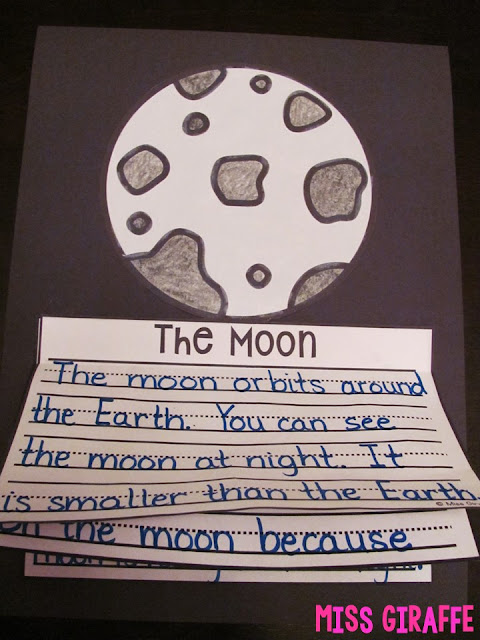 The Moon
The moon orbits around
the Earth. You can see
the moon at night. It
is smaller than the Earth.
on the moon because
MISS GIRAFFE